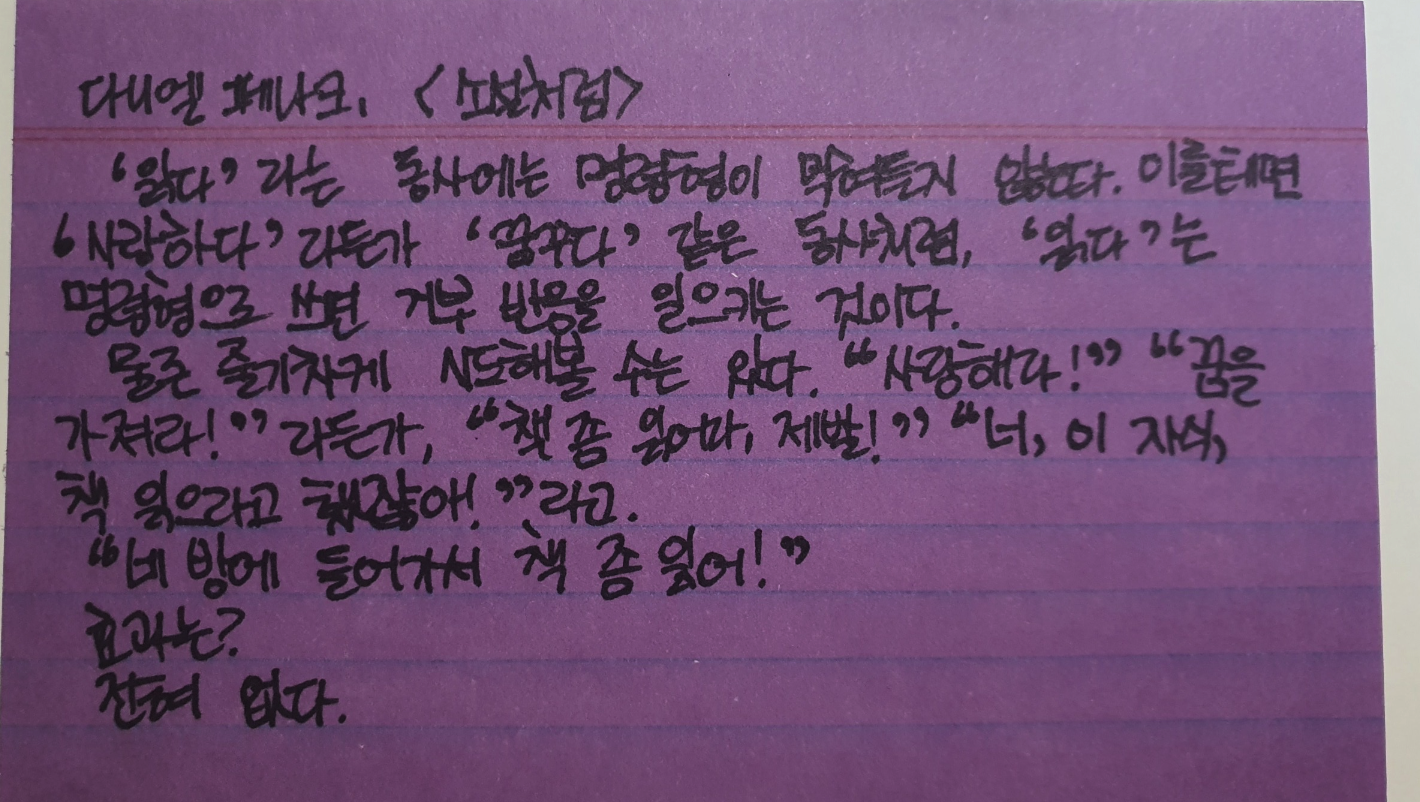 다니엘 페나크, <소설처럼>
‘읽다’라는 동사에는 명령형이 먹혀들지 않는다. 이를테면
‘사랑하다’라든가 ‘꿈꾸다’ 같은 동사처럼, ‘읽다’는
명령형으로 쓰면 거부 반응을 일으키는 것이다.
물론 줄기차게 시도해볼 수는 있다. “사랑해라!” “꿈을
가져라!”라든가, “책 좀 읽어라, 제발!” “너, 이 자식,
책 읽으라고 했잖아!”라고.
“네 방에 들어가서 책 좀 읽어!”
효과는?
전혀 없다.